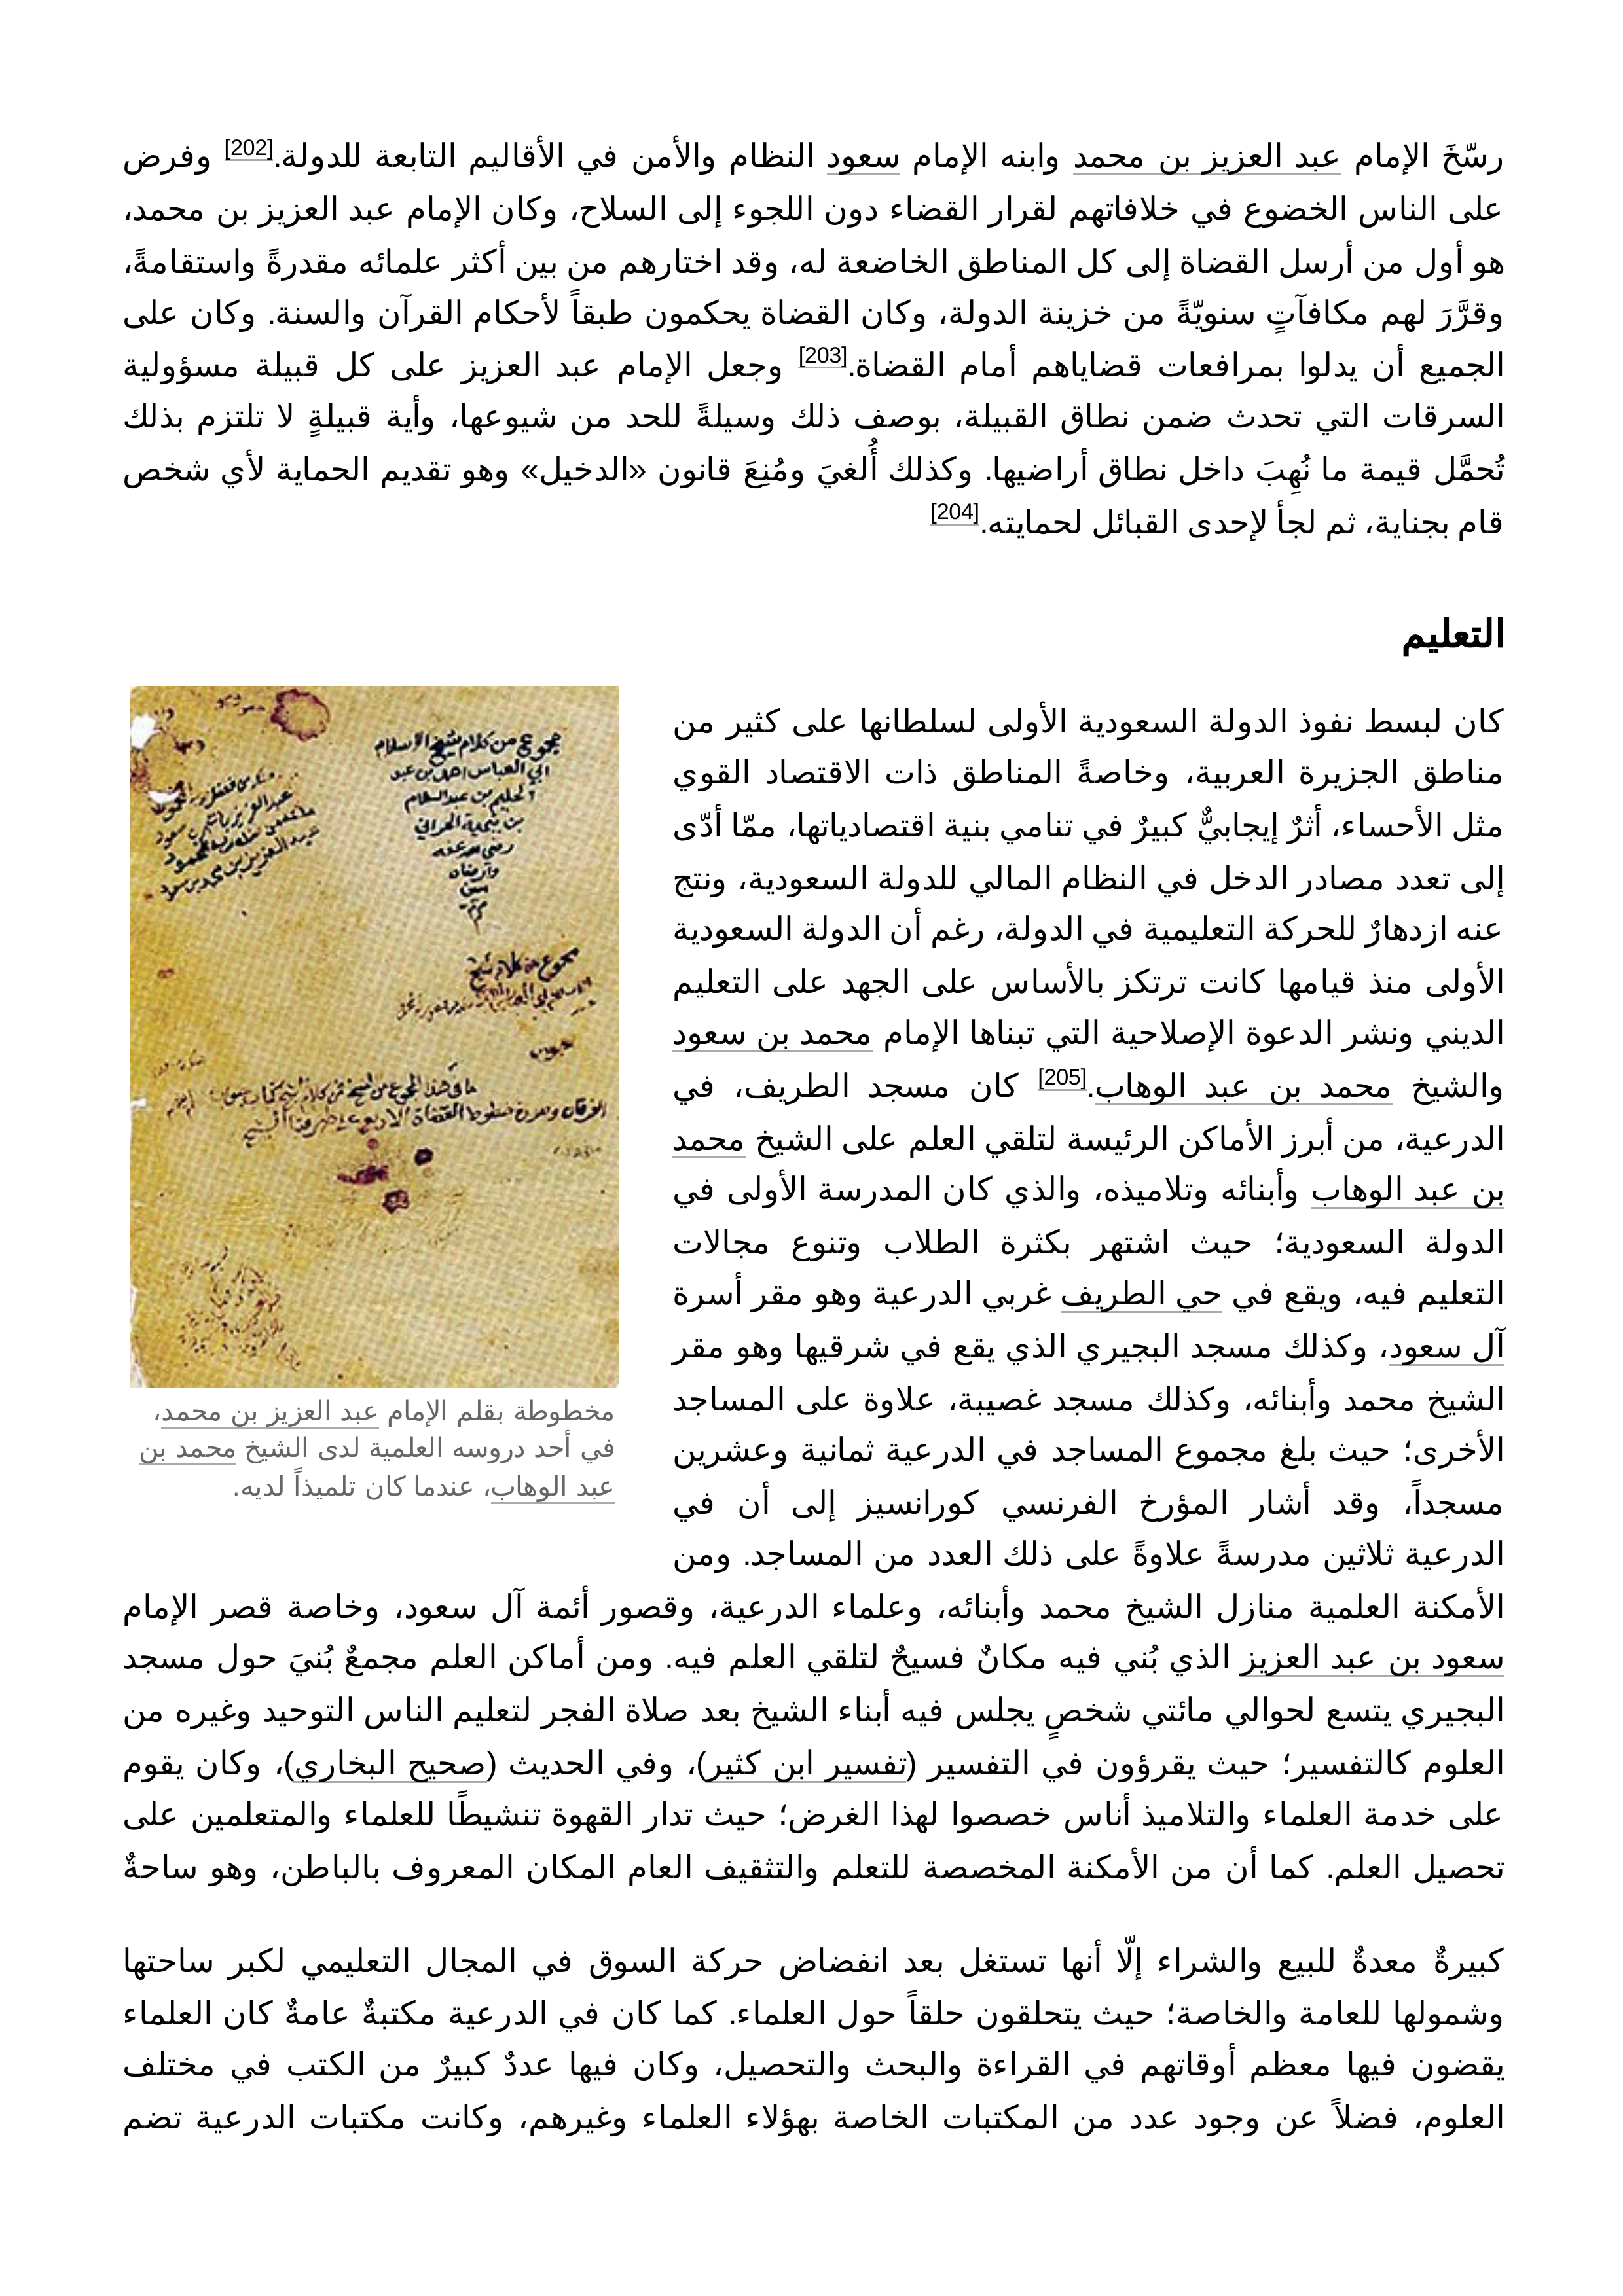 رسّخَ الإمام عبد العزيز بن محمد وابنه الإمام سعود النظام والأمن في الأقاليم التابعة للدولة.[202] وفرض
على الناس الخضوع في خلافاتهم لقرار القضاء دون اللجوء إلى السلاح، وكان الإمام عبد العزيز بن محمد،
هو أول من أرسل القضاة إلى كل المناطق الخاضعة له، وقد اختارهم من بين أكثر علمائه مقدرةً واستقامةً،
وقرَّرَ لهم مكافآتٍ سنويّةً من خزينة الدولة، وكان القضاة يحكمون طبقاً لأحكام القرآن والسنة. وكان على
الجميع أن يدلوا بمرافعات قضاياهم أمام القضاة.[203] وجعل الإمام عبد العزيز على كل قبيلة مسؤولية
السرقات التي تحدث ضمن نطاق القبيلة، بوصف ذلك وسيلةً للحد من شيوعها، وأية قبيلةٍ لا تلتزم بذلك
تُحمَّل قيمة ما نُهِبَ داخل نطاق أراضيها. وكذلك أُلغيَ ومُنِعَ قانون «الدخيل» وهو تقديم الحماية لأي شخص
قام بجناية، ثم لجأ لإحدى القبائل لحمايته.[204]
التعليم
كان لبسط نفوذ الدولة السعودية الأولى لسلطانها على كثير من
مناطق الجزيرة العربية، وخاصةً المناطق ذات الاقتصاد القوي
مثل الأحساء، أثرٌ إيجابيٌّ كبيرٌ في تنامي بنية اقتصادياتها، ممّا أدّى
إلى تعدد مصادر الدخل في النظام المالي للدولة السعودية، ونتج
عنه ازدهارٌ للحركة التعليمية في الدولة، رغم أن الدولة السعودية
الأولى منذ قيامها كانت ترتكز بالأساس على الجهد على التعليم
الديني ونشر الدعوة الإصلاحية التي تبناها الإمام محمد بن سعود
والشيخ محمد بن عبد الوهاب.[205] كان مسجد الطريف، في
الدرعية، من أبرز الأماكن الرئيسة لتلقي العلم على الشيخ محمد
بن عبد الوهاب وأبنائه وتلاميذه، والذي كان المدرسة الأولى في
الدولة السعودية؛ حيث اشتهر بكثرة الطلاب وتنوع مجالات
التعليم فيه، ويقع في حي الطريف غربي الدرعية وهو مقر أسرة
آل سعود، وكذلك مسجد البجيري الذي يقع في شرقيها وهو مقر
الشيخ محمد وأبنائه، وكذلك مسجد غصيبة، علاوة على المساجد
الأخرى؛ حيث بلغ مجموع المساجد في الدرعية ثمانية وعشرين
مسجداً، وقد أشار المؤرخ الفرنسي كورانسيز إلى أن في
الدرعية ثلاثين مدرسةً علاوةً على ذلك العدد من المساجد. ومن
الأمكنة العلمية منازل الشيخ محمد وأبنائه، وعلماء الدرعية، وقصور أئمة آل سعود، وخاصة قصر الإمام
سعود بن عبد العزيز الذي بُني فيه مكانٌ فسيحٌ لتلقي العلم فيه. ومن أماكن العلم مجمعٌ بُنيَ حول مسجد
البجيري يتسع لحوالي مائتي شخصٍ يجلس فيه أبناء الشيخ بعد صلاة الفجر لتعليم الناس التوحيد وغيره من
العلوم كالتفسير؛ حيث يقرؤون في التفسير (تفسير ابن كثير)، وفي الحديث (صحيح البخاري)، وكان يقوم
على خدمة العلماء والتلاميذ أناس خصصوا لهذا الغرض؛ حيث تدار القهوة تنشيطًا للعلماء والمتعلمين على
تحصيل العلم. كما أن من الأمكنة المخصصة للتعلم والتثقيف العام المكان المعروف بالباطن، وهو ساحةٌ
كبيرةٌ معدةٌ للبيع والشراء إلّا أنها تستغل بعد انفضاض حركة السوق في المجال التعليمي لكبر ساحتها
وشمولها للعامة والخاصة؛ حيث يتحلقون حلقاً حول العلماء. كما كان في الدرعية مكتبةٌ عامةٌ كان العلماء
يقضون فيها معظم أوقاتهم في القراءة والبحث والتحصيل، وكان فيها عددٌ كبيرٌ من الكتب في مختلف
العلوم، فضلاً عن وجود عدد من المكتبات الخاصة بهؤلاء العلماء وغيرهم، وكانت مكتبات الدرعية تضم
مجموع من كلام شيخ الاسلام
ابي العباس احمد بن عبد
الحليم بن عبد السلام
بن تيمية الحراني
رضي الله عنه
وارضاه
امين
مجموع من كلام شيخ
مخطوطة بقلم الإمام عبد العزيز بن محمد،
في أحد دروسه العلمية لدى الشيخ محمد بن
عبد الوهاب، عندما كان تلميذاً لديه.